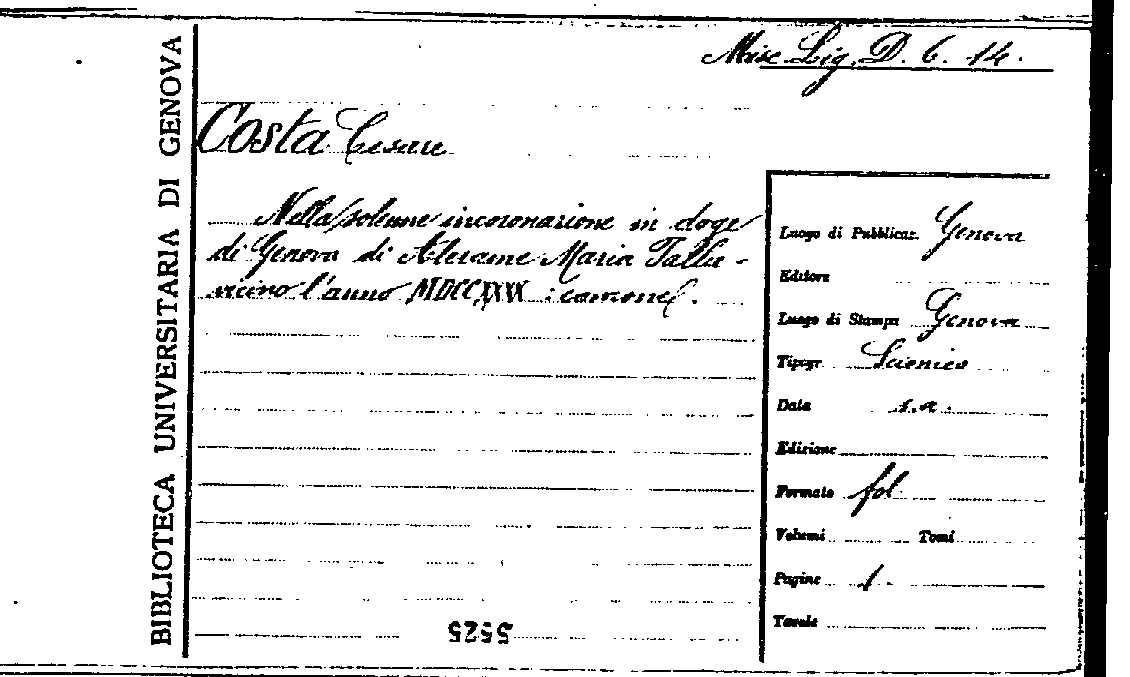 BIBLIOTECA UNIVERSITARIA DI GENOVA
Misc. Lig. D. 6. 14.
Costa Cesare
Nella solenne incoronazione in doge
di Genova di Alerame Maria Palla-
vicino l'anno MDCCXXXX : canzone.
Luogo di Pubblicaz. Genova
Editore
Luogo di Stampa Genova
Tipogr. Scionico
Data s.a.
Edizione
Formato fol
Volumi Tomi
Pagine 1.
Tavole
5525